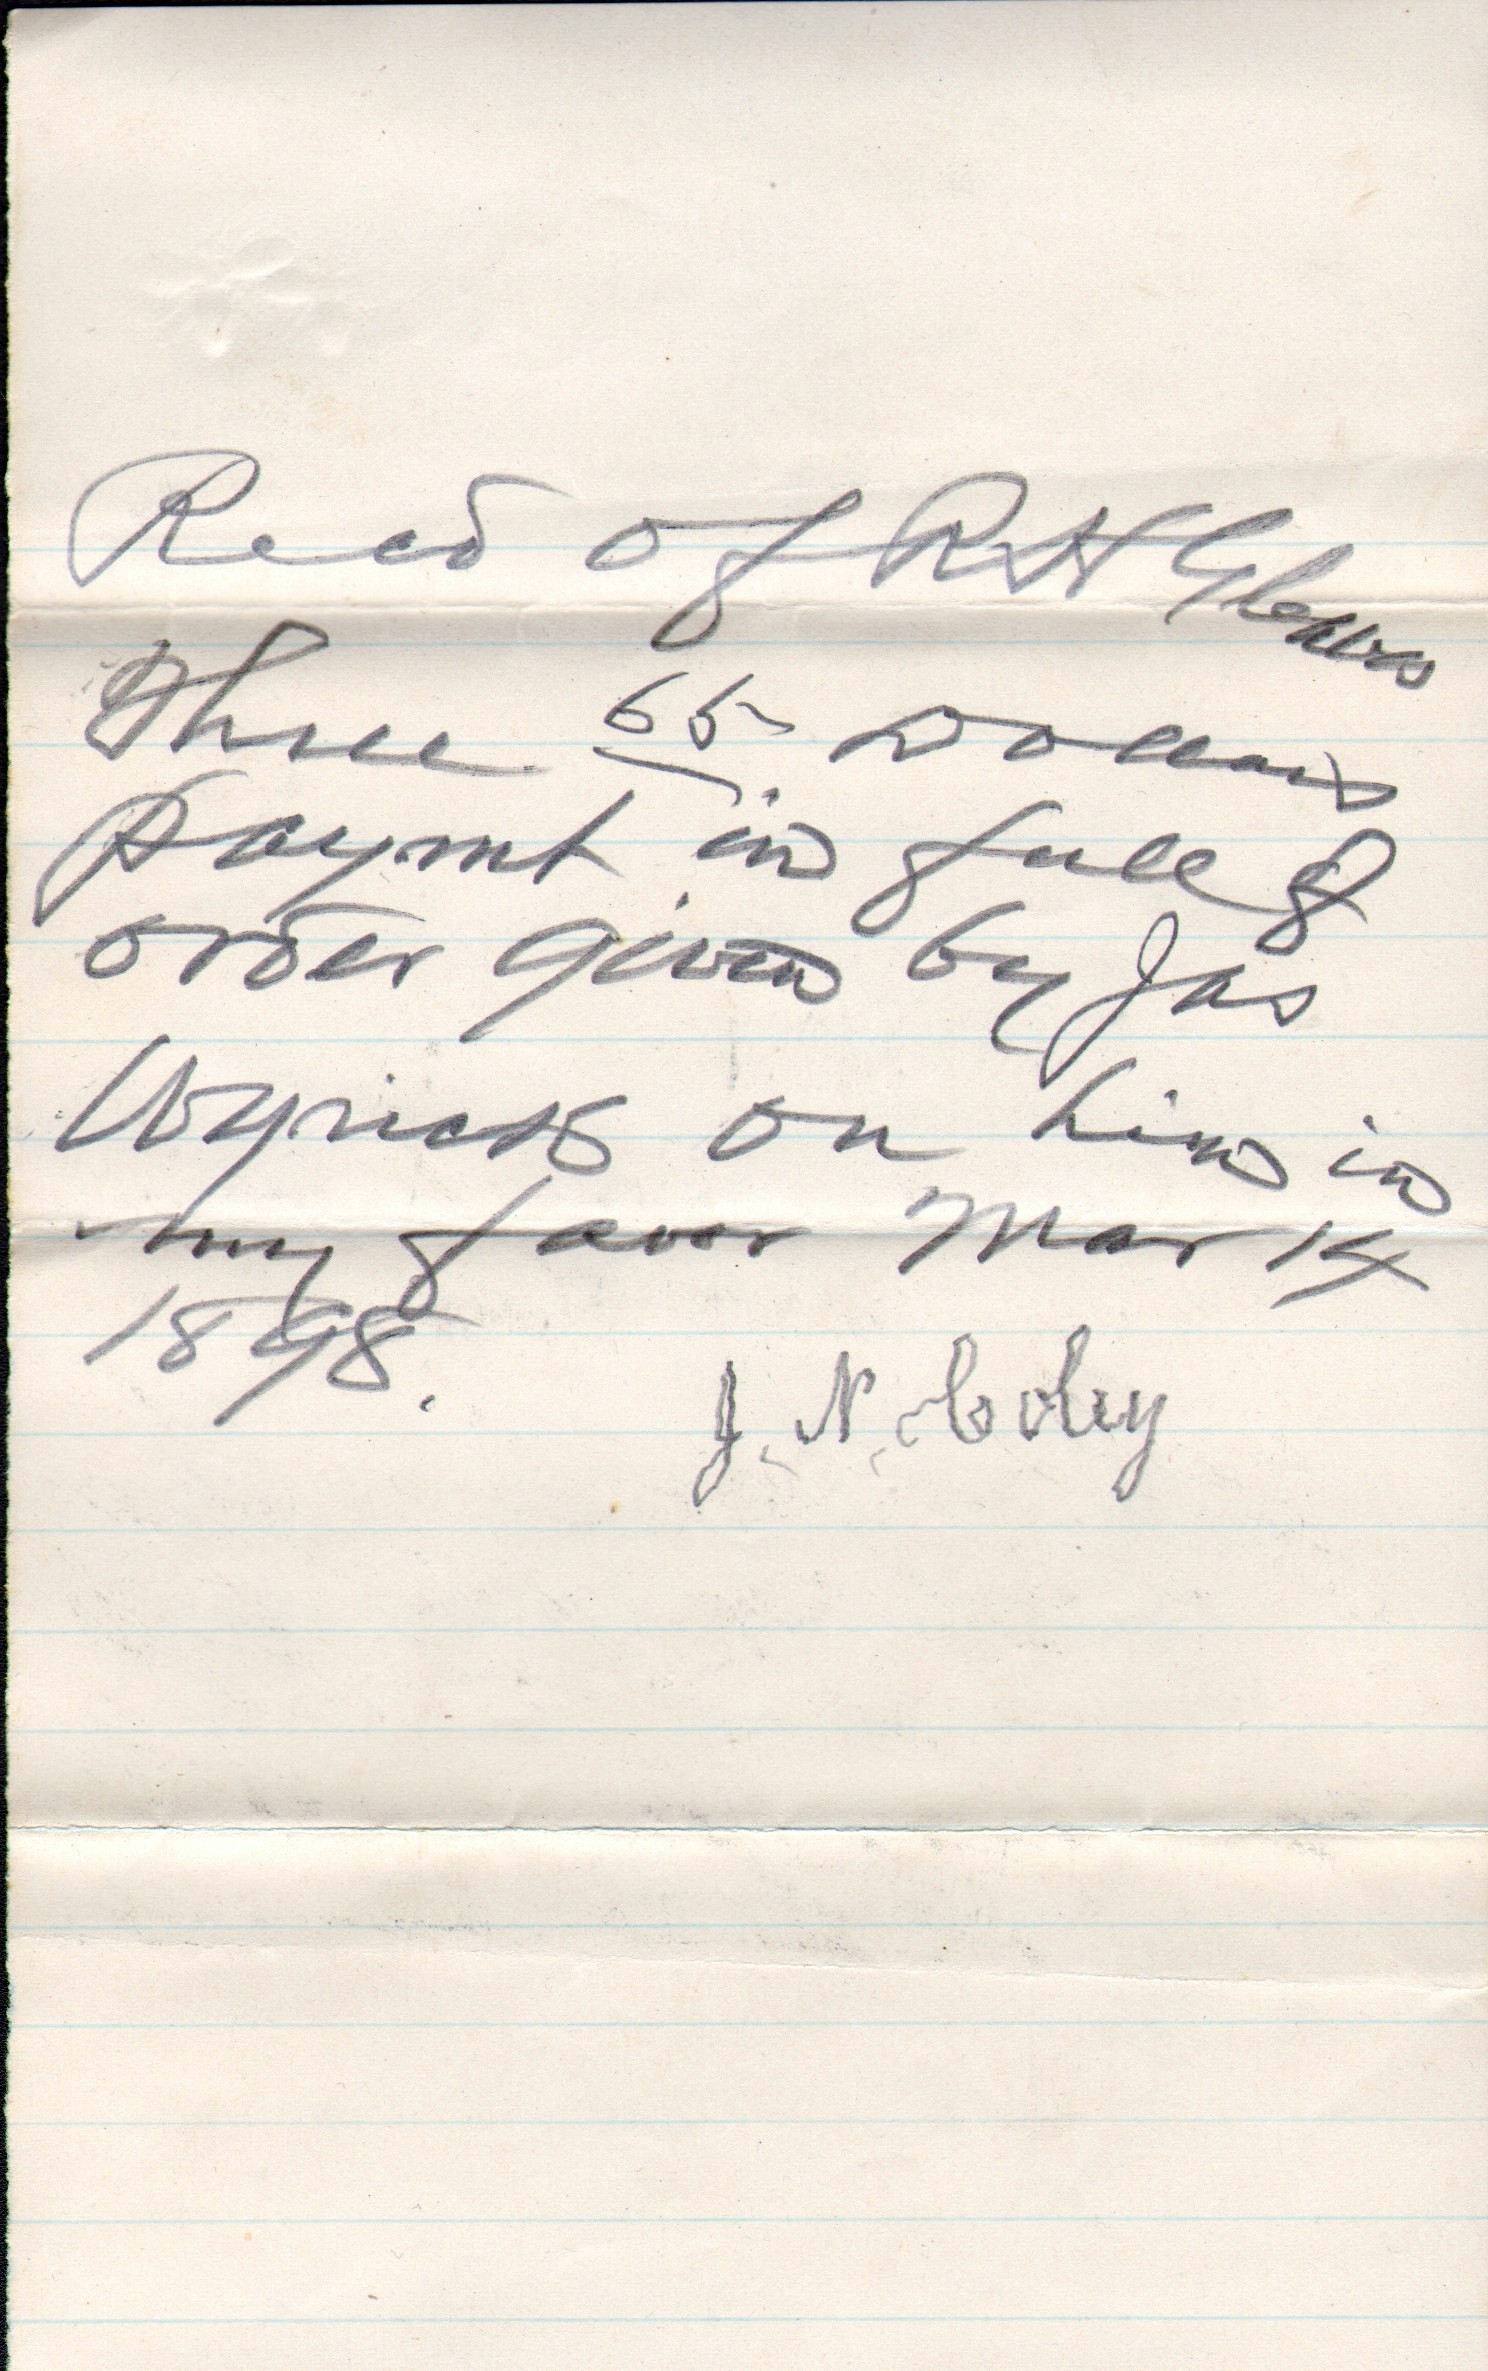 Recd of RH Gleaves
Three 65 Dollars
paymt in full of
order given by Jas
Wyrick on him in
my favor Mar 14
1898.
J. N. Coley